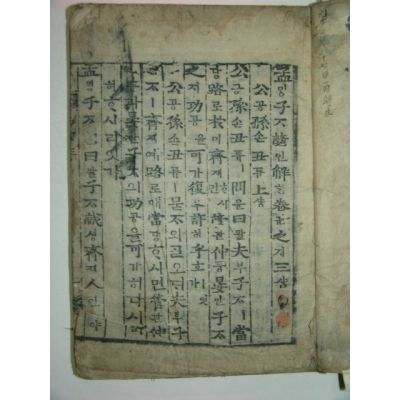 孟ᄆᆡᆼ子ᄌᆞ諺언解ᄒᆡ卷권之지三삼
公공孫손丑튜上샹
公공孫손丑튜ㅣ問문曰왈夫부子ᄌᆞㅣ當
당路로於어齊졔ᄒᆞ시 仲듕晏안子ᄌᆞ
之지功공을可가復부許허乎호ㅣ잇
公공孫손丑튜ㅣ묻ᄌᆞ와ᄀᆞᆯ오ᄃᆡ夫부子
ᄌᆞㅣ齊졔예路로애當당ᄒᆞ시면管관仲
子ᄌᆞ의功공을可가히다시
許허ᄒᆞ시리잇가
孟ᄆᆡᆼ子ᄌᆞㅣ曰왈子ᄌᆞㅣ誠셩齊졔人인也야